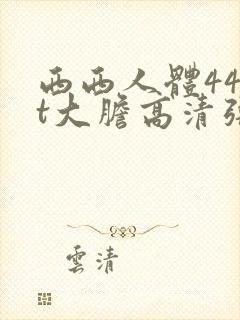 西西人體44
t大膽高清
雲清